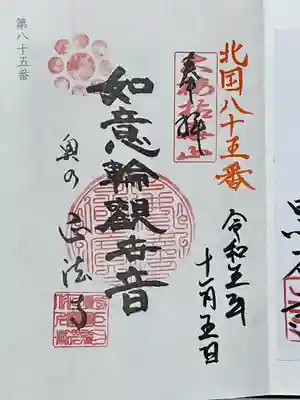 北国八十五番
奉拝
大梅拈華山
令和五年
十一月五日
如意輪觀世音
奥の正法寺
第八十五番